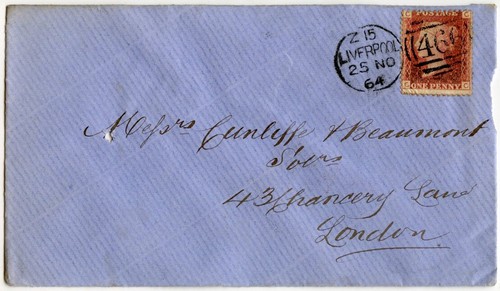 Z 15
LIVERPOOL
25 NO
64
466
POSTAGE
C G
G C
ONE PENNY
Messrs Cunliffe & Beaumont
Sors
43 Chancery Lane
London.